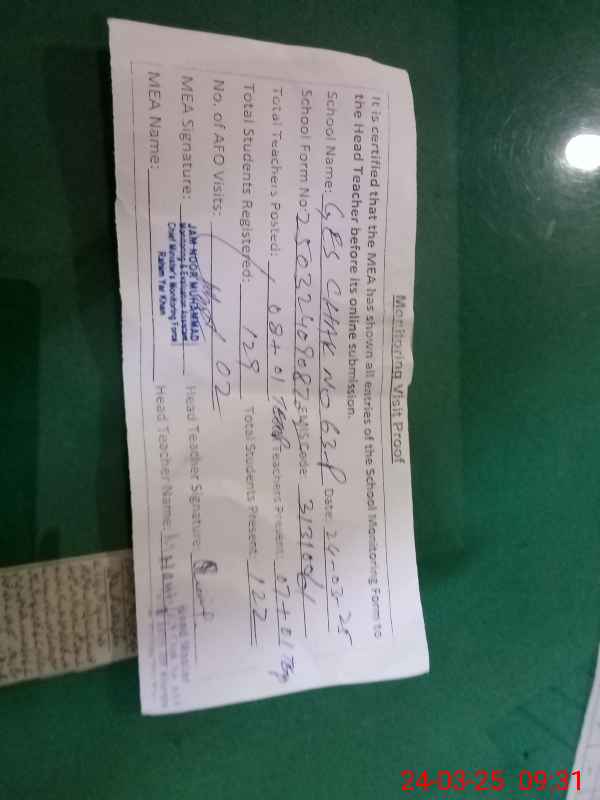 Monitoring Visit Proof
It is certified that the MEA has shown all entries of the School Monitoring Form to
the Head Teacher before its online submission.
School Name: GES CHAK NO 63-P Date: 24-03-25
School Form No: 2503240908 EMIS Code: 313100
Total Teachers Posted: 08+01 Temp Teachers Present: 07+01
Total Students Registered: 129 Total Students Present: 122
No. of AFO Visits: 02
MEA Signature: Head Teacher Signature:
MEA Name: Head Teacher Name:
JAM NOOR MUHAMMAD
Monitoring & Evaluation Assistant
Chief Minister's Monitoring Force
Rahim Yar Khan
24-03-25 09:31